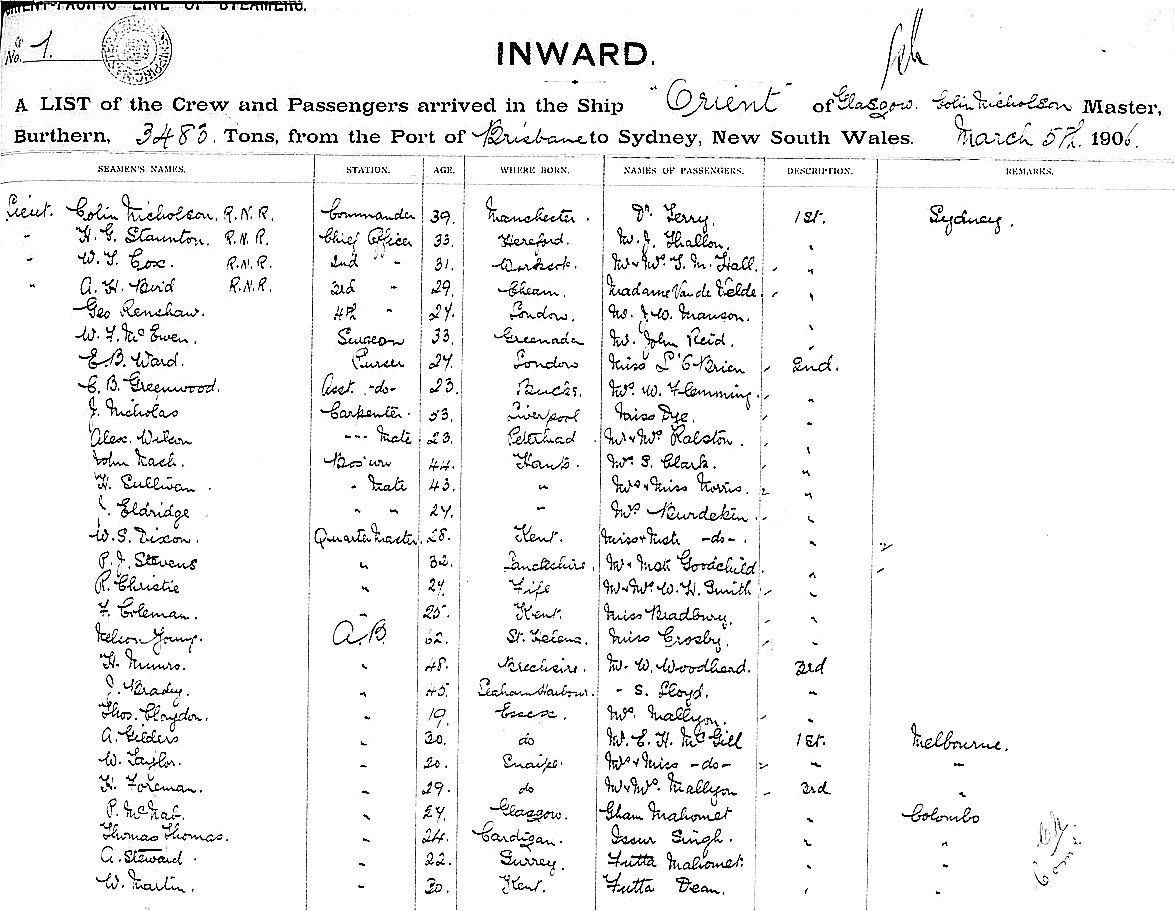 ORIENT-PACIFIC LINE OF STEAMERS.
No. 1.
INWARD.
A LIST of the Crew and Passengers arrived in the Ship "Orient" of Glasgow. Colin Nicholson Master,
Burthern, 3483. Tons, from the Port of Brisbane to Sydney, New South Wales. March 5th. 1906.
SEAMEN'S NAMES. STATION. AGE. WHERE BORN. NAMES OF PASSENGERS. DESCRIPTION. REMARKS.
Lieut. Colin Nicholson, R.N.R. Commander 39. Manchester. Dr. Terry. 1st. Sydney.
" H. G. Staunton. R.N.R. Chief Officer 33. Hereford. Mr. J. Thallon. "
" W. S. Cox. R.N.R. 2nd " " 31. Worksop. Mr & Mrs S. M. Hall. "
" A. H. Reid R.N.R. 3rd " 29. Cheam. Madame Van de Velde. "
Geo Renshaw. 4th " 24. London. Mr. J. W. Manson. "
W. F. McEwen. Surgeon 33. Greenada Mr. John Reid. "
E. B. Ward. Purser 24. London Miss L O'Brien 2nd.
C. B. Greenwood. Asst. -do- 23. Bucks. Mrs. W. Flemming. "
J. Nicholas Carpenter. 53. Liverpool Miss Dye. "
Alex. Wilson --- Mate 23. Peterhead Mr & Mrs Ralston. "
John Nash. Bos'un 44. Hants. Mrs. S. Clark. "
H. Sullivan. " Mate 43. " Mrs & Miss Norris. "
J. Eldridge " " 24. " Mrs Burdekin. "
W. S. Dixon. Quarter Master. 28. Kent. Miss & Mstr -do-. "
P. J. Stevens " 32. Lanckshire. Mr & Mstr Goodchild. "
R. Christie " 24. Fife Mr & Mrs W. H. Smith "
F. Coleman. " 25. Kent. Miss Bradbury. "
Nelson Young. A.B 62. St. Helena. Miss Crosby. "
H. Munro. " 48. Mr. W. Woodhead. 3rd
J. Brady. " 45. Seaham Harbour. " S. Lloyd. "
Thos. Claydon. " 19. Essex. Mrs. Mallyon. "
A. Gilders " 30. do Mr. C. H. McGill 1st. Melbourne.
W. Taylor. " 20. Snaipe. Mrs & Miss -do- " "
H. Foreman. " 29. do Mr & Mrs. Mallyon 3rd "
P. McNab. " 24. Glasgow. Gham Mahomet " Colombo
Thomas Thomas. " 24. Cardigan. Issur Singh. " "
A. Steward. " 22. Surrey. Futta Mahomet. " "
W. Martin. " 30. Kent. Futta Dean. " "